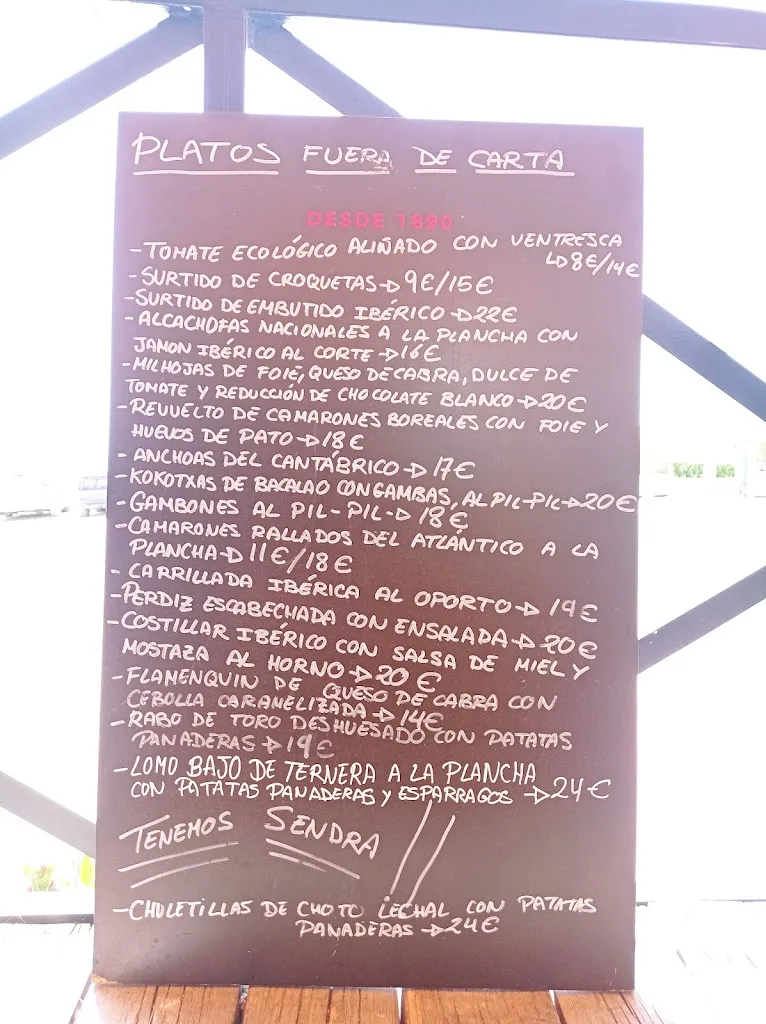 PLATOS FUERA DE CARTA
DESDE 1890
-TOMATE ECOLÓGICO ALIÑADO CON VENTRESCA
8€/14€
-SURTIDO DE CROQUETAS→9€/15€
-SURTIDO DE EMBUTIDO IBÉRICO→22€
-ALCACHOFAS NACIONALES A LA PLANCHA CON
JAMON IBÉRICO AL CORTE→16€
-MILHOJAS DE FOIE, QUESO DE CABRA, DULCE DE
TOMATE Y REDUCCIÓN DE CHOCOLATE BLANCO→20€
-REVUELTO DE CAMARONES BOREALES CON FOIE Y
HUEVOS DE PATO→18€
-ANCHOAS DEL CANTÁBRICO→17€
-KOKOTXAS DE BACALAO CON GAMBAS, AL PIL-PIL→20€
-GAMBONES AL PIL-PIL→18€
-CAMARONES RALLADOS DEL ATLÁNTICO A LA
PLANCHA→11€/18€
-CARRILLADA IBÉRICA AL OPORTO→19€
-PERDIZ ESCABECHADA CON ENSALADA→20€
-COSTILLAR IBÉRICO CON SALSA DE MIEL Y
MOSTAZA AL HORNO→20€
-FLAMENQUIN DE QUESO DE CABRA CON
CEBOLLA CARAMELIZADA→14€
-RABO DE TORO DESHUESADO CON PATATAS
PANADERAS→19€
-LOMO BAJO DE TERNERA A LA PLANCHA
CON PATATAS PANADERAS Y ESPARRAGOS→24€
TENEMOS SENDRA //
-CHULETILLAS DE CHOTO LECHAL CON PATATAS
PANADERAS→24€